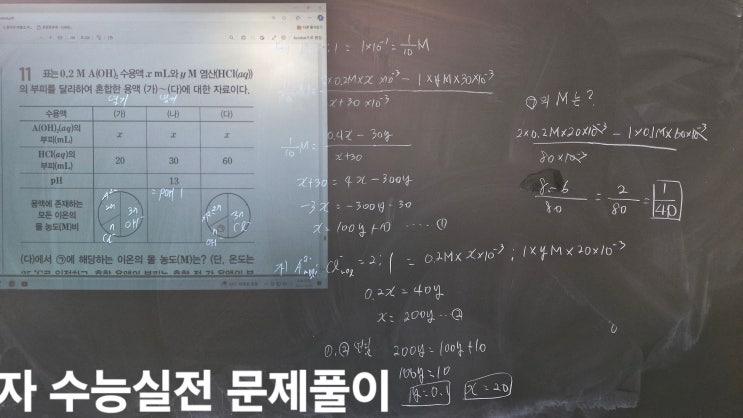 11 표는 0.2 M A(OH)₂ 수용액 x mL와 y M 염산(HCl(aq))
의 부피를 달리하여 혼합한 용액 (가)~(다)에 대한 자료이다.
수용액 (가) (나) (다)
A(OH)₂(aq)의 부피(mL) x x x
HCl(aq)의 부피(mL) 20 30 60
pH 13
= pOH 1
용액에 존재하는 모든 이온의 몰 농도(M)비
A²⁺ 2n 3n OH⁻ n Cl⁻
A²⁺ 2n 3n Cl⁻ n OH⁻
(다)에서 ㉠에 해당하는 이온의 몰 농도(M)는? (단, 온도는
; 1 = 1×10⁻¹ = 1/10 M
×0.2M×x×10⁻³ − 1×yM×30×10⁻³
x+30×10⁻³
1/10 M = 0.4x − 30y / x+30
x+30 = 4x − 300y
−3x = −300y−30
x = 100y+10 ····· ①
= 2 ; 1 = 0.2M×x×10⁻³ ; 1×yM×20×10⁻³
0.2x = 40y
x = 200y ··· ②
①, ② 200y = 100y+10
100y = 10
y = 0.1 x = 20
㉠의 M는?
2×0.2M×20×10⁻³ − 1×0.1M×60×10⁻³
80×10⁻³
8−6 / 80 = 2/80 = 1/40
자 수능실전 문제풀이